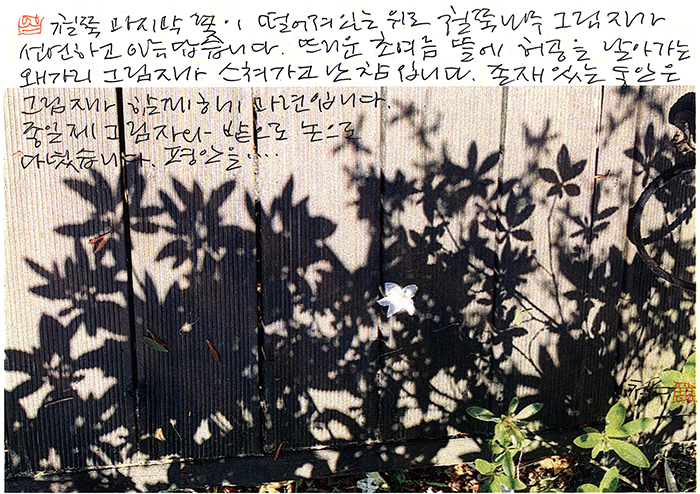 철쭉 마지막 꽃이 떨어져 있는 위로 철쭉나무 그림자가
선연하고 아름답습니다. 뜨거운 초여름 뜰에 허공을 날아가는
왜가리 그림자가 스쳐가고 난 참입니다. 존재 있는 동안은
그림자가 함께하기 마련입니다.
종일 제 그림자와 밭으로 논으로
다녔습니다. 평안을....